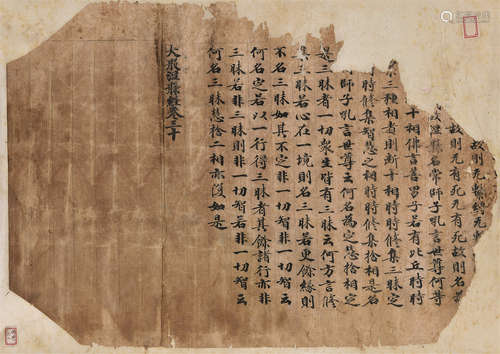 故則无繫縛无
故則无有死无有死故則名
涅槃名常師子吼言世尊何等
十相佛言善男子若有比丘時時
集三種相者則斷十相時時修集三昧定
時時修集智慧之相時時修集捨相是名
師子吼言世尊云何名為定慧捨相定
是三昧者一切衆生皆有三昧云何方言修
集三昧若心在一境則名三昧若更餘緣則
不名三昧如其不定非一切智非一切智云
何名定若以一行得三昧者其餘諸行亦非
三昧若非三昧則非一切智若非一切智云
何名三昧慧捨二相亦復如是
大般涅槃經卷三十